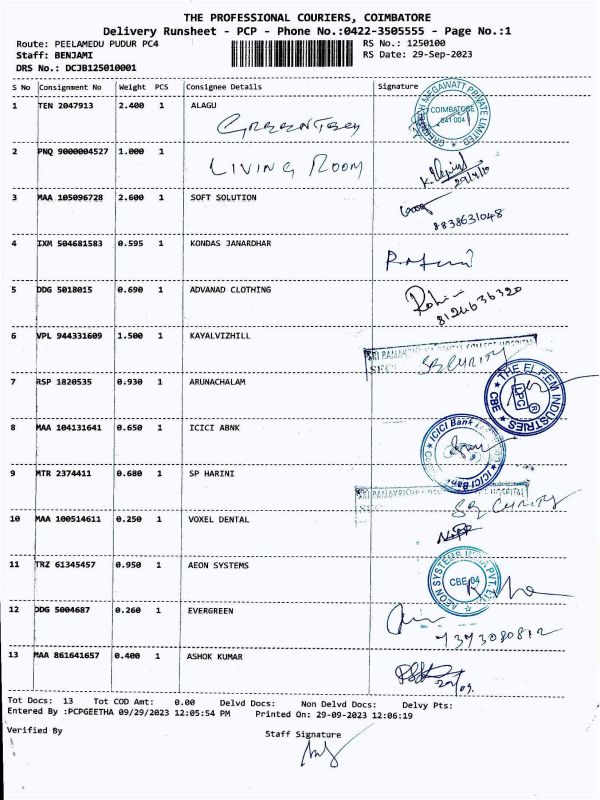 THE PROFESSIONAL COURIERS, COIMBATORE
Delivery Runsheet - PCP - Phone No.:0422-3505555 - Page No.:1
Route: PEELAMEDU PUDUR PC4 RS No.: 1250100
Staff: BENJAMI RS Date: 29-Sep-2023
DRS No.: DCJB125010001
S No Consignment No Weight PCS Consignee Details Signature
1 TEN 2047913 2.400 1 ALAGU
MEGAWATT PRIVATE LIMITED COIMBATORE 641 004
2 PNQ 9000004527 1.000 1 LIVING ROOM
3 MAA 105096728 2.600 1 SOFT SOLUTION
8838631048
4 IXM 504681583 0.595 1 KONDAS JANARDHAR
5 DDG 5018015 0.690 1 ADVANAD CLOTHING
8124636320
6 VPL 944331609 1.500 1 KAYALVIZHILL
SECURITY
7 RSP 1820535 0.930 1 ARUNACHALAM
THE ELPEM INDUSTRIES CBE
8 MAA 104131641 0.650 1 ICICI ABNK
ICICI Bank ICICI Bank
9 MTR 2374411 0.680 1 SP HARINI
SECURITY
10 MAA 100514611 0.250 1 VOXEL DENTAL
11 TRZ 61345457 0.950 1 AEON SYSTEMS
AEON SYSTEMS INDIA PVT. LTD. CBE-04
12 DDG 5004687 0.260 1 EVERGREEN
7373080812
13 MAA 861641657 0.400 1 ASHOK KUMAR
Tot Docs: 13 Tot COD Amt: 0.00 Delvd Docs: Non Delvd Docs: Delvy Pts:
Entered By :PCPGEETHA 09/29/2023 12:05:54 PM Printed On: 29-09-2023 12:06:19
Verified By Staff Signature